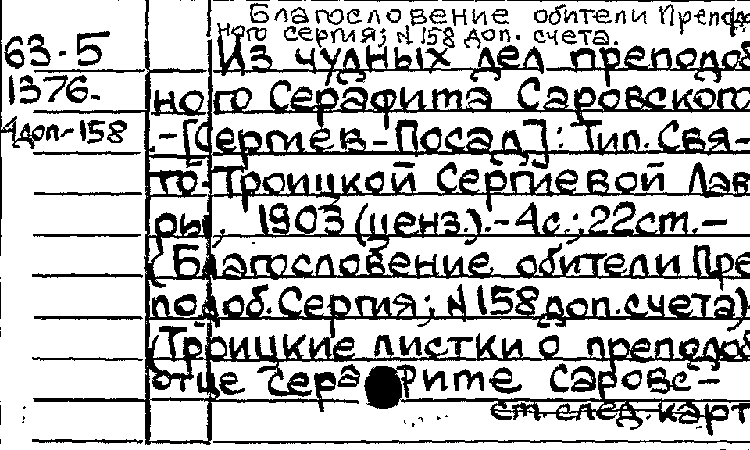 Благословение обители Препод
ного сергия; № 158 доп. счета.
63-5
Из чудных дел преподоб
1376-
ного Серафима Саровского
4доп-158
.-[Сергиев-Посад]: Тип. Свя-
то-Троицкой Сергиевой Лав
ры, 1903 (ценз.).-4с.; 22см.-
(Благословение обители Пре
подоб. Сергия; № 158 доп. счета)
(Троицкие листки о преподоб
отце Серафиме Саровс-
ст. след. карт